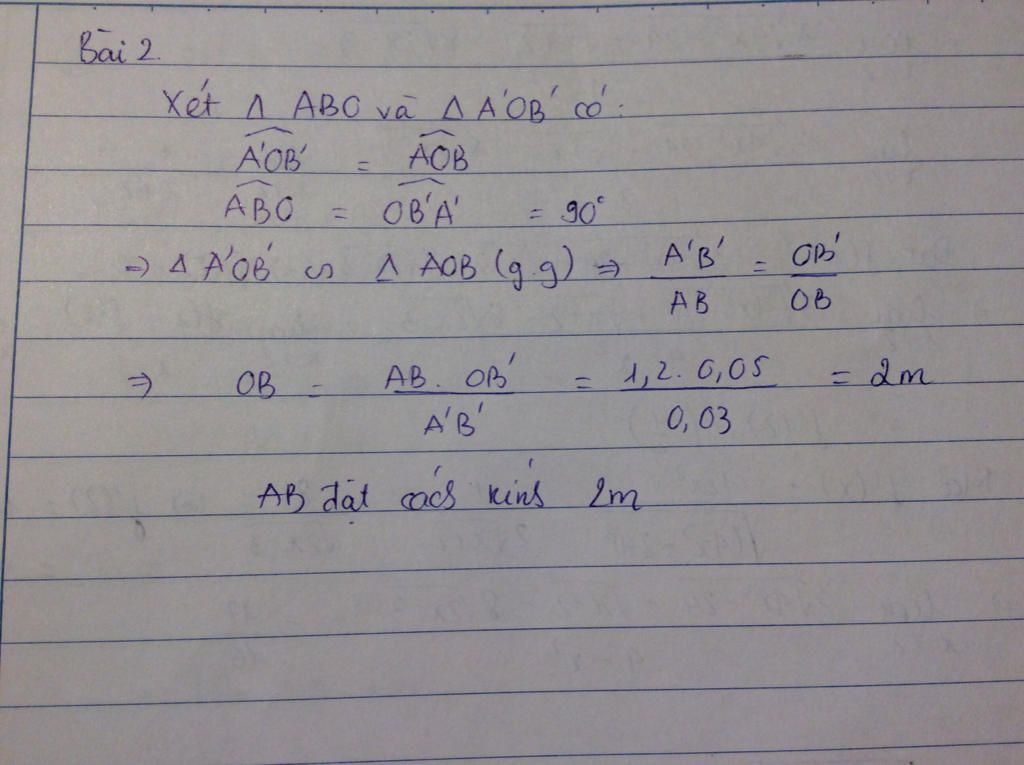 Bài 2.
Xét Δ ABO và Δ A'OB' có:
A'OB' = AOB
ABO = OB'A' = 90°
=> Δ A'OB' ∽ Δ AOB (g.g) => A'B' / AB = OB' / OB
=> OB = AB. OB' / A'B' = 1,2. 0,05 / 0,03 = 2m
AB đặt cách kính 2m